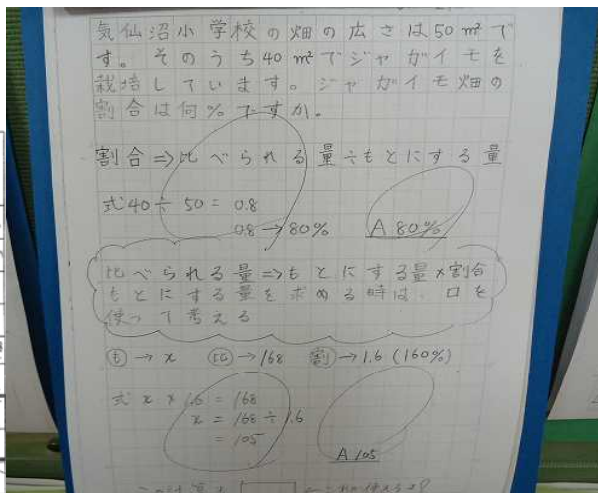 気仙沼小学校の畑の広さは50m²で
す。そのうち40m²でジャガイモを
栽培しています。ジャガイモ畑の
割合は何%ですか。
割合⇒比べられる量÷もとにする量
式40÷50=0.8
0.8→80% A 80%
比べられる量⇒もとにする量×割合
もとにする量を求める時は、口を
使って考える
も→x 比→168 割→1.6(160%)
式 x×1.6=168
x=168÷1.6
=105
A 105